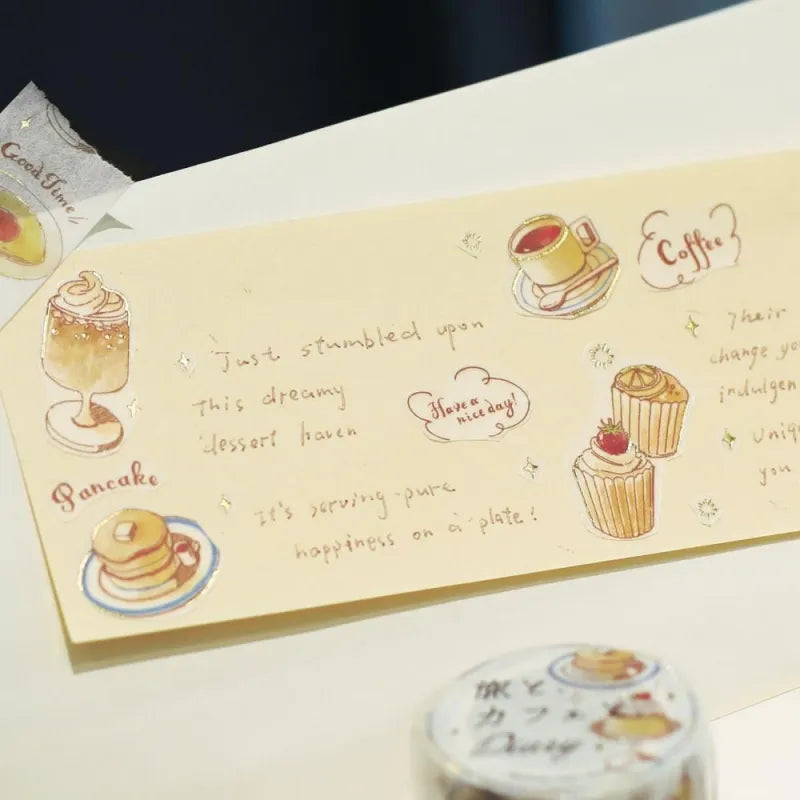 Good Time!
Just stumbled upon
This dreamy
dessert haven
Have a
nice day!
It's serving pure
happiness on a plate!
Pancake
Coffee
Their
change
indulgen
Uniq
you
旅と
カフェと
Diary